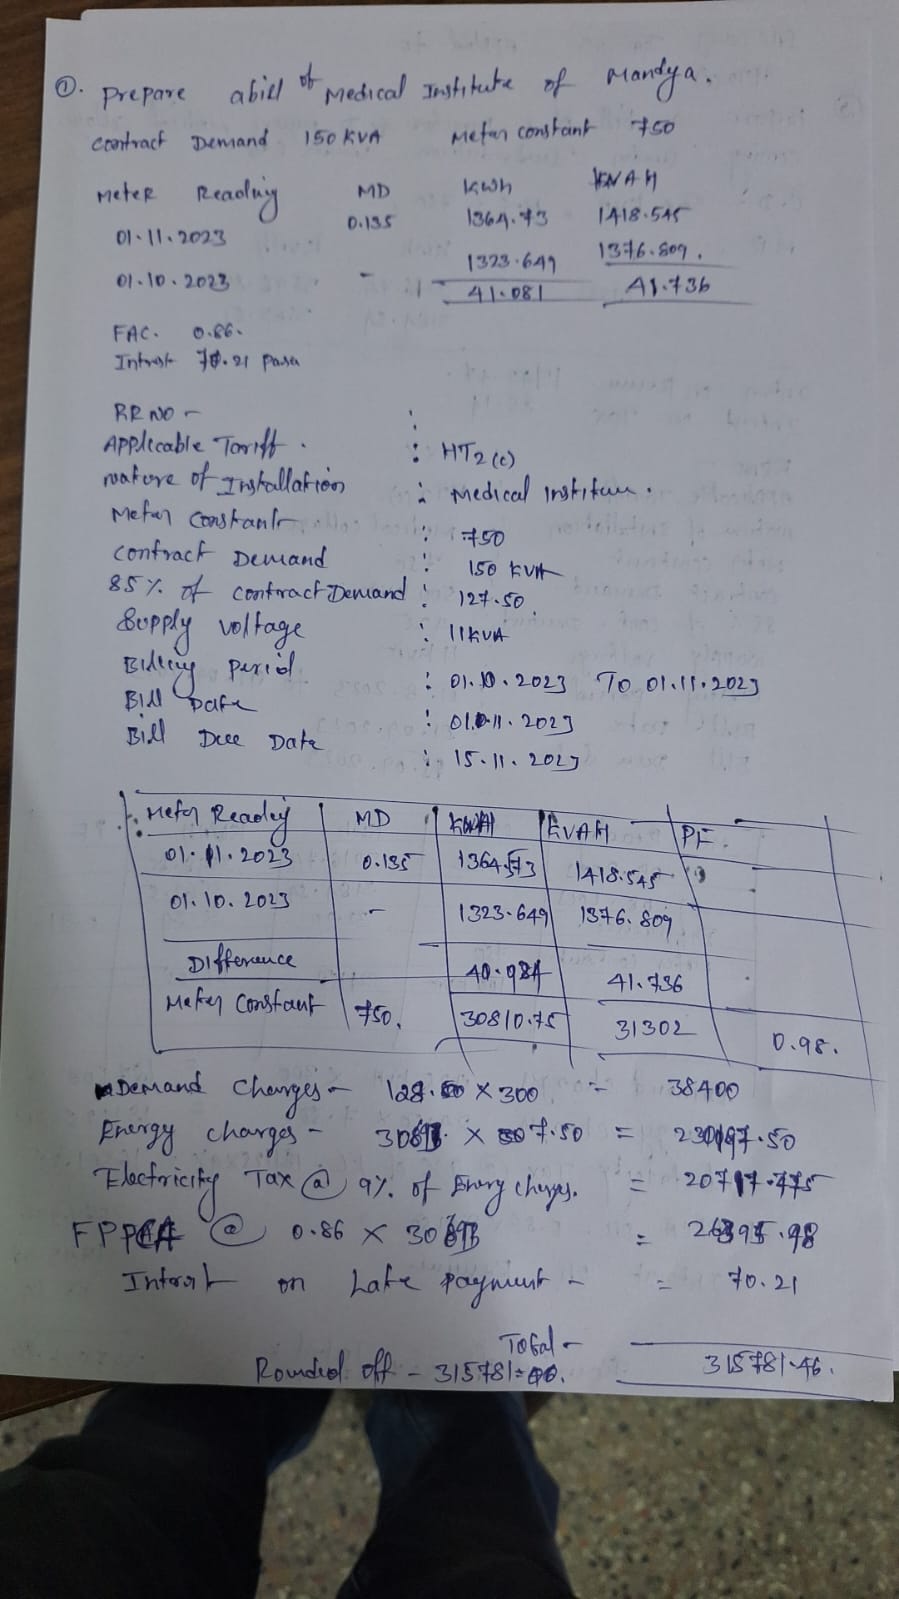 ①. Prepare a bill of Medical Institute of Mandya.
Contract Demand 150 KVA Meter constant 750
Meter Reading MD KWh KVAH
01.11.2023 0.135 1364.73 1418.545
01.10.2023 - 1323.649 1376.809.
41.081 41.736
FAC. 0.86.
Intrest 70.21 Paisa
RR NO - :
Applicable Tariff. : HT2(c)
nature of Installation : Medical Institu.
Meter Constant : 750
Contract Demand : 150 KVA
85% of contract Demand : 127.50
Supply voltage : 11KVA
Billing period : 01.10.2023 To 01.11.2023
Bill Date : 01.11.2023
Bill Due Date : 15.11.2023
Meter Reading MD KWH KVAH PF.
01.11.2023 0.135 1364.73 1418.545
01.10.2023 - 1323.649 1376.809
Difference 41.736
Meter Constant 750. 30810.75 31302 0.98.
Demand Charges - × 300 = 38400
Energy charges - × 7.50 =
Electricity Tax @ 9% of Energy charges. =
@ 0.86 × =
Intrest on Late payment - = 70.21
Total - 315781.46.
Rounded off -